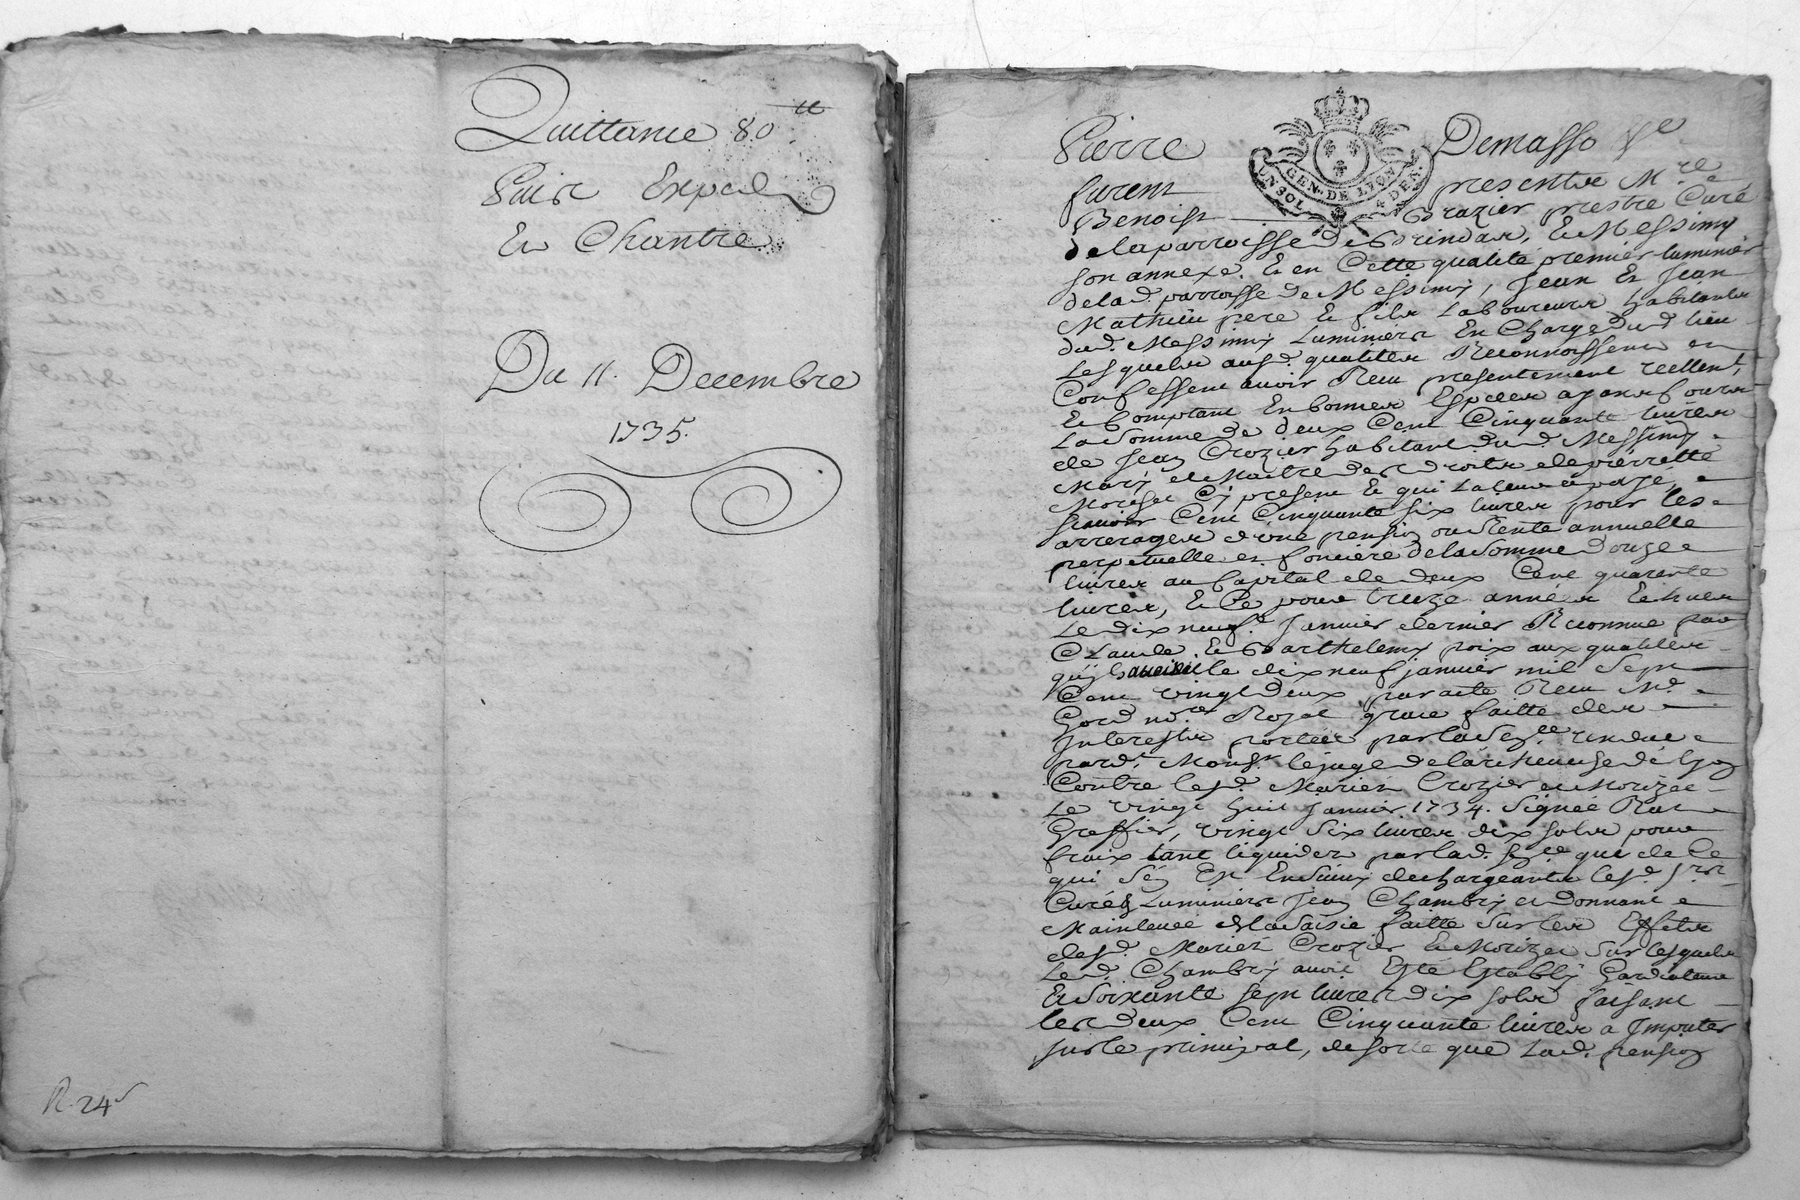 Quittance 80 ₶
Paix Exped
En Chantre
Du 11. Decembre
1735.
R. 24
Pierre Demasso
GEN. DE LYON
UN SOL 4 DEN.
furent presents Mre
Benoist Brazier prestre Curé
de la parroisse de Brindas, Et Messimy
son annexe. Et en Cette qualité premier luminier
de lad. parroisse de Messimy, Jean Et Jean
Mathieu pere Et fils Laboureurs habitants
dud. Messimy Luminiers En Charge dud. lieu
Lesquels ausd. qualites Reconnoissent et
Confessent avoir Reçu presentement reellemt.
Et Comptant En bonnes Especes ayants cours
La Somme de deux Cent Cinquante livres
de Jean Crozier habitant dud. Messimy
Mary et Maitre des droits de pierrette
Cy present Et qui La
scavoir Cent Cinquante six livres pour les
arrerages d'une pension ou Rente annuelle
perpetuelle et fonciere de la Somme douze
livres au Capital de deux Cent quarente
livres, Et Ce pour treize années Echues
Le dix neuf Janvier dernier Reconnue par
Claude Et Barthelemy poix aux qualites
quil le dix neuf janvier mil Sept
Cent vingt deux par acte Reçu Me
Gord nore Royal grace faitte des
Interests portée par la Sece rendue
pard. Monsr le juge de Larcheveché de Lyon
Contre lesd. Mariés Crozier et Morizet
Le vingt huit Janvier 1734. Signée
Greffier, vingt six livres dix sols pour
fraix tant liquides par lad. Sece que de Ce
qui s'en Est Ensuivy dechargeants lesd. srs
Curé & Luminiers Jean Chambry et donnant
Mainlevée de la Saisie faitte sur les Effets
desd. Mariés Crozier Et Morizet sur lesquels
Led. Chambry avoit Esté Estably Gardiateur
Et Soixante sept livres dix sols faisant
les deux Cent Cinquante livres a Imputer
sur le principal, de sorte que Lad. pension